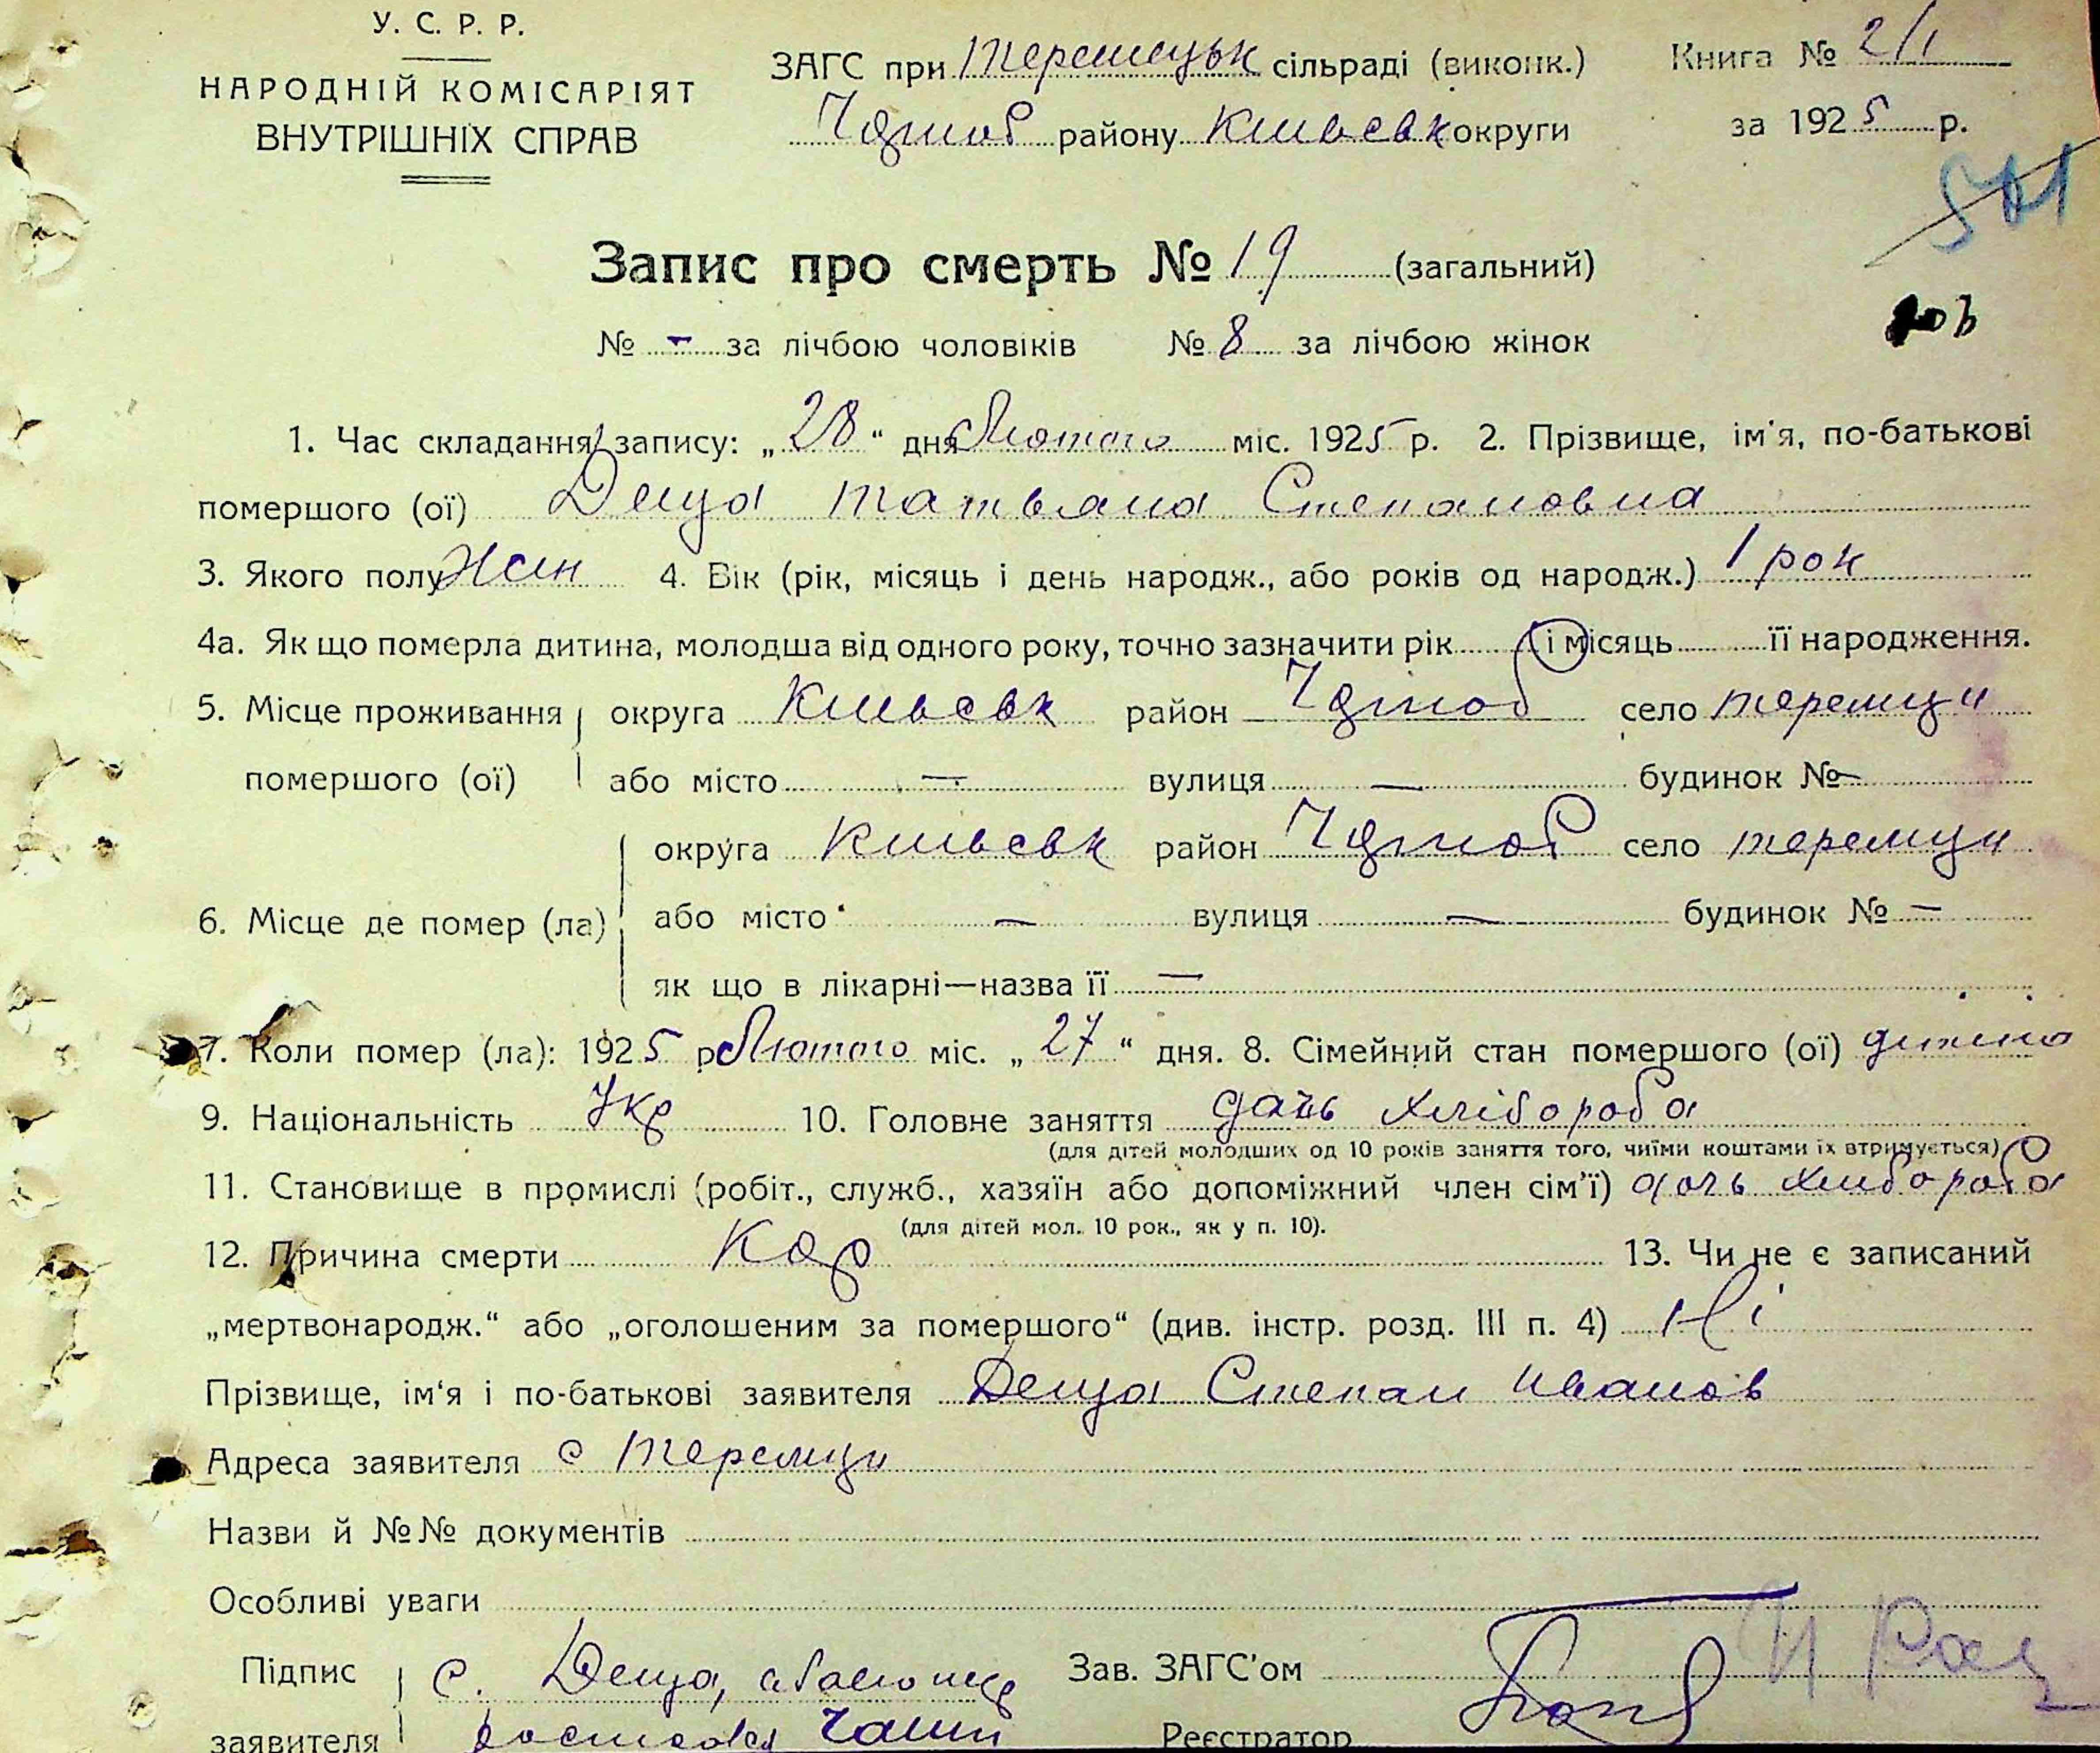 У. С. Р. Р.
НАРОДНІЙ КОМІСАРІЯТ
ВНУТРІШНІХ СПРАВ
ЗАГС при Теремецьк сільраді (виконк.)
району Київськ округи
Книга № 2/1
за 1925 р.
501
Запис про смерть № 19 (загальний)
№ - за лічбою чоловіків № 8 за лічбою жінок
1. Час складання запису: „28“ дня Лютого міс. 1925 р. 2. Прізвище, ім'я, по-батькові
помершого (ої) Деща Татьяна Степановна
3. Якого полу Жен 4. Вік (рік, місяць і день народж., або років од народж.) 1 рок
4а. Як що померла дитина, молодша від одного року, точно зазначити рік і місяць її народження.
5. Місце проживання округа район село Теремци
помершого (ої) або місто — вулиця — будинок № —
округа район село Теремци
6. Місце де помер (ла) або місто — вулиця — будинок № —
як що в лікарні—назва її —
7. Коли помер (ла): 1925 р Лютого міс. „27“ дня. 8. Сімейний стан помершого (ої) дитина
9. Національність Укр 10. Головне заняття дочь хлібороба
(для дітей молодших од 10 років заняття того, чиїми коштами їх втримується)
11. Становище в промислі (робіт., служб., хазяїн або допоміжний член сім'ї) дочь хлибороба
(для дітей мол. 10 рок., як у п. 10).
12. Причина смерти Кор 13. Чи не є записаний
„мертвонародж.“ або „оголошеним за помершого“ (див. інстр. розд. III п. 4) Ні
Прізвище, ім'я і по-батькові заявителя Деща Степан Иванов
Адреса заявителя с Теремци
Назви й №№ документів
Особливі уваги
Підпис С. Деща, Зав. ЗАГС'ом
заявителя Реєстратор